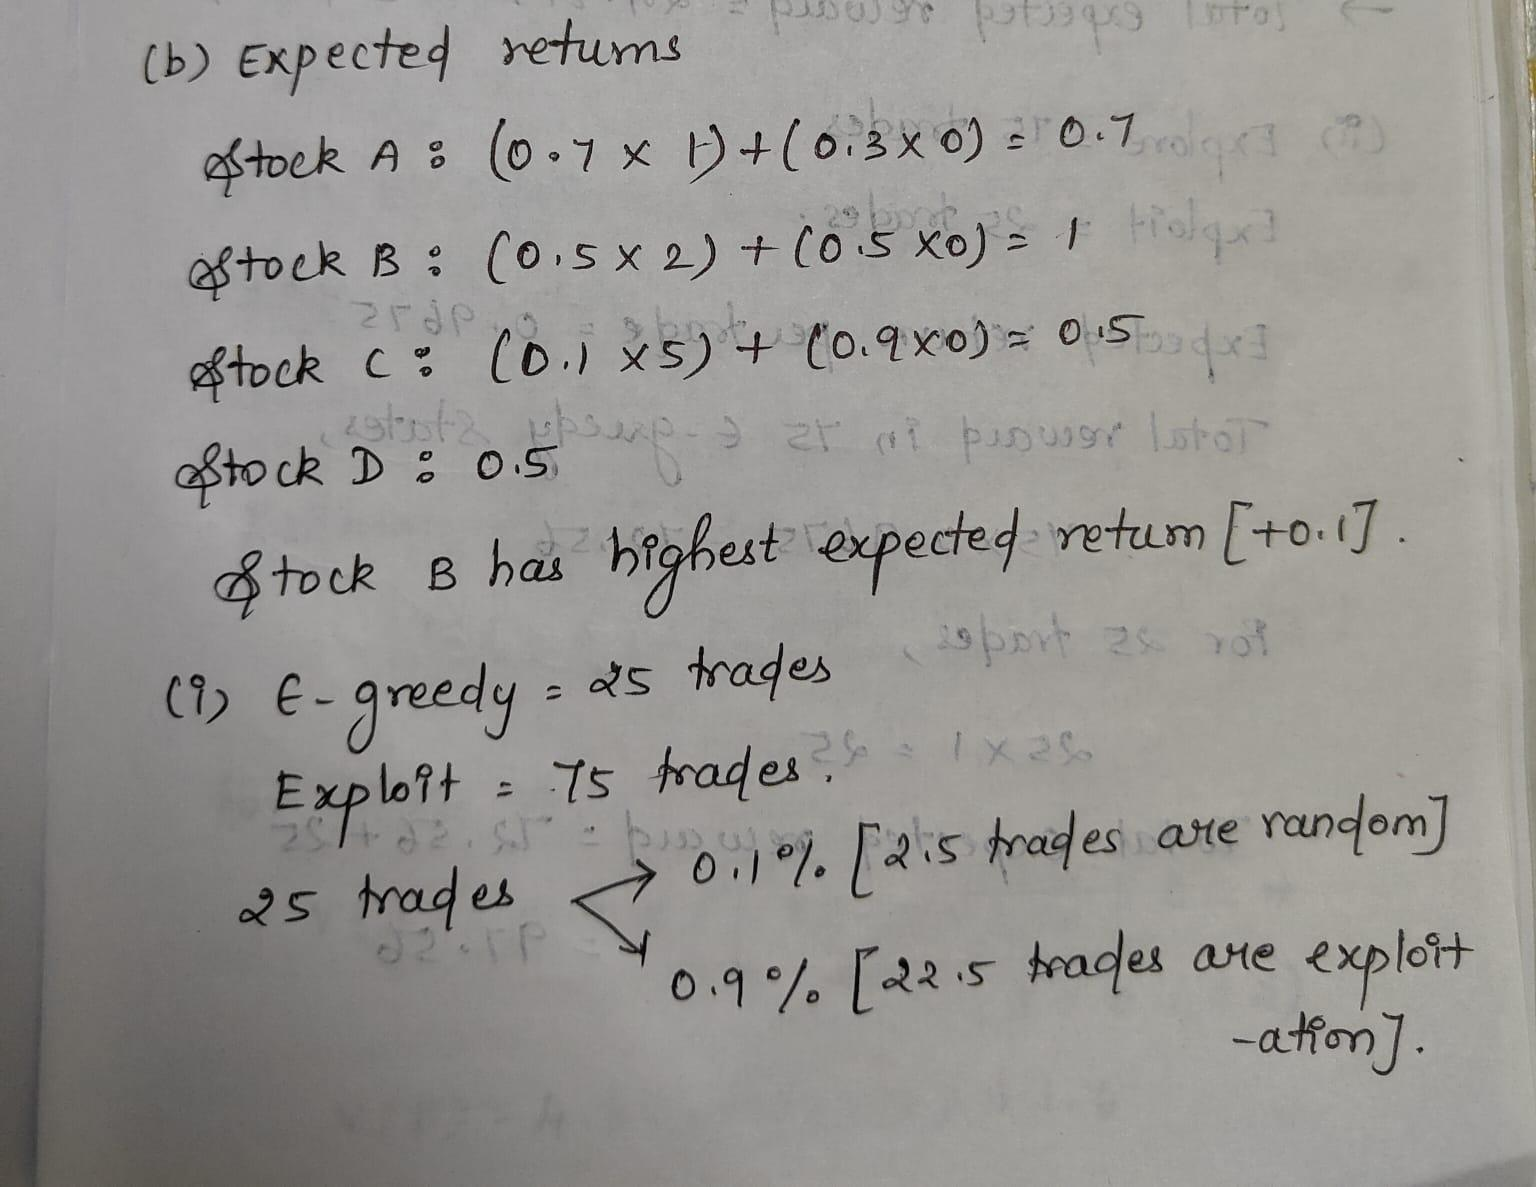 (b) Expected returns
Stock A : (0.7 x 1) + (0.3 x 0) = 0.7
Stock B : (0.5 x 2) + (0.5 x0) = 1
Stock C : (0.1 x5) + (0.9x0) = 0.5
Stock D : 0.5
Stock B has highest expected return [+0.1].
(i) ε-greedy = 25 trades
Exploit = 75 trades.
25 trades → 0.1% [2.5 trades are random]
→ 0.9% [22.5 trades are exploit
-ation].